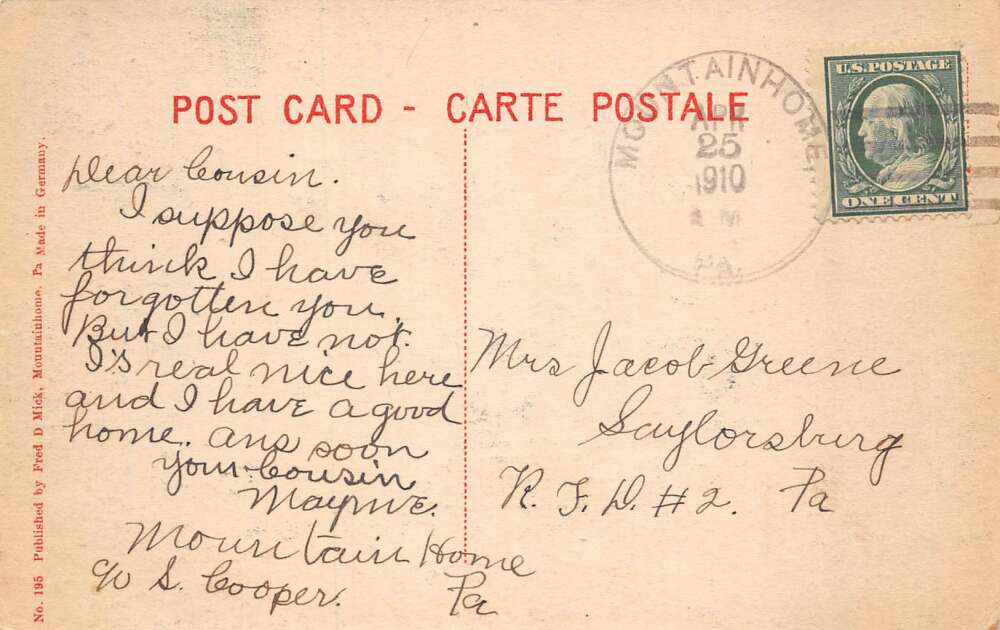 POST CARD - CARTE POSTALE
No. 195 Published by Fred D Mick, Mountainhome, Pa Made in Germany.
MOUNTAINHOME,
APR
25
1910
M
PA.
U.S. POSTAGE
ONE CENT
Dear Cousin.
I suppose you
think I have
forgotten you.
But I have not.
I's real nice here
and I have a good
home. ans soon
your Cousin
Mountain Home
c/o S. Cooper. Pa
Mrs Jacob Greene
Saylorsburg
R. F. D. #2. Pa